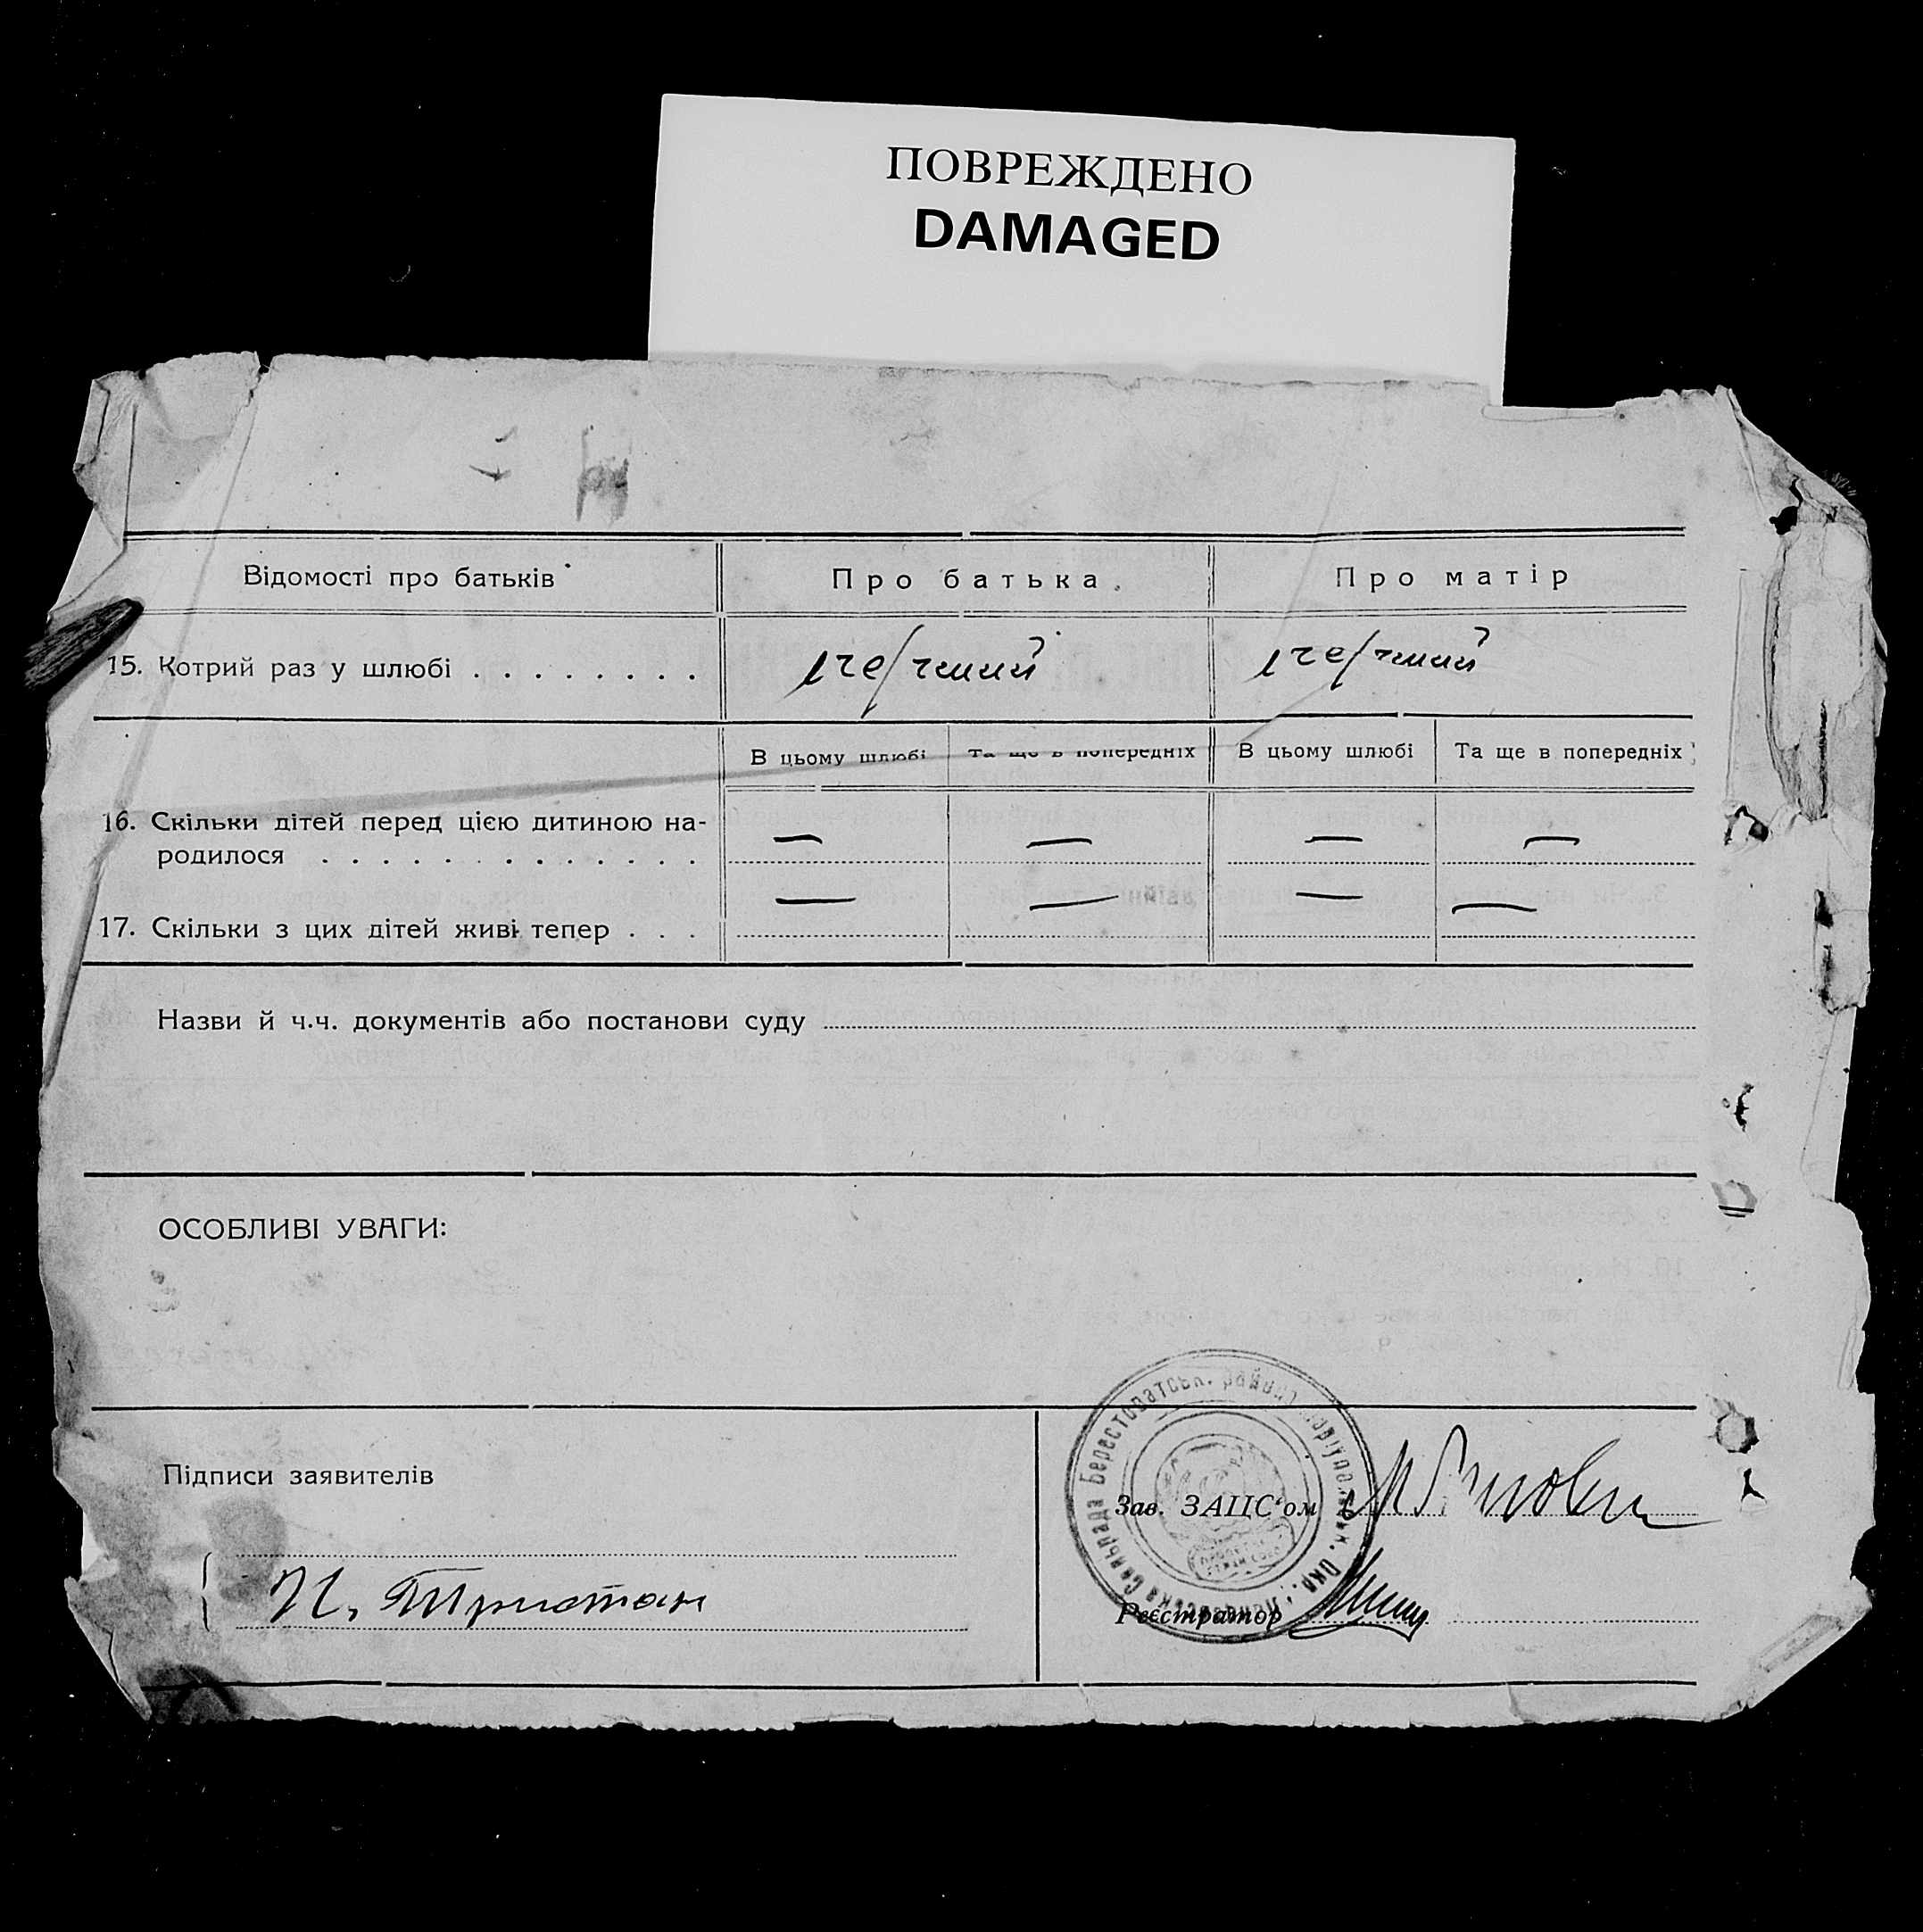 ПОВРЕЖДЕНО
DAMAGED
Відомості про батьків
Про батька.
Про матір
15. Котрий раз у шлюбі . . . . . . . .
перший
перший
В цьому шлюбі
Та ще в попередніх
В цьому шлюбі
Та ще в попередніх
16. Скільки дітей перед цією дитиною на-
родилося . . . . . . . . . . . . .
— — — —
17. Скільки з цих дітей живі тепер . . .
— — — —
Назви й ч.ч. документів або постанови суду
ОСОБЛИВІ УВАГИ:
Підписи заявителів
И. Тристан
Зав. ЗАЦС'ом
Реєстратор
Сельрада Берестоватськ. району Маріупольськ. Окр.